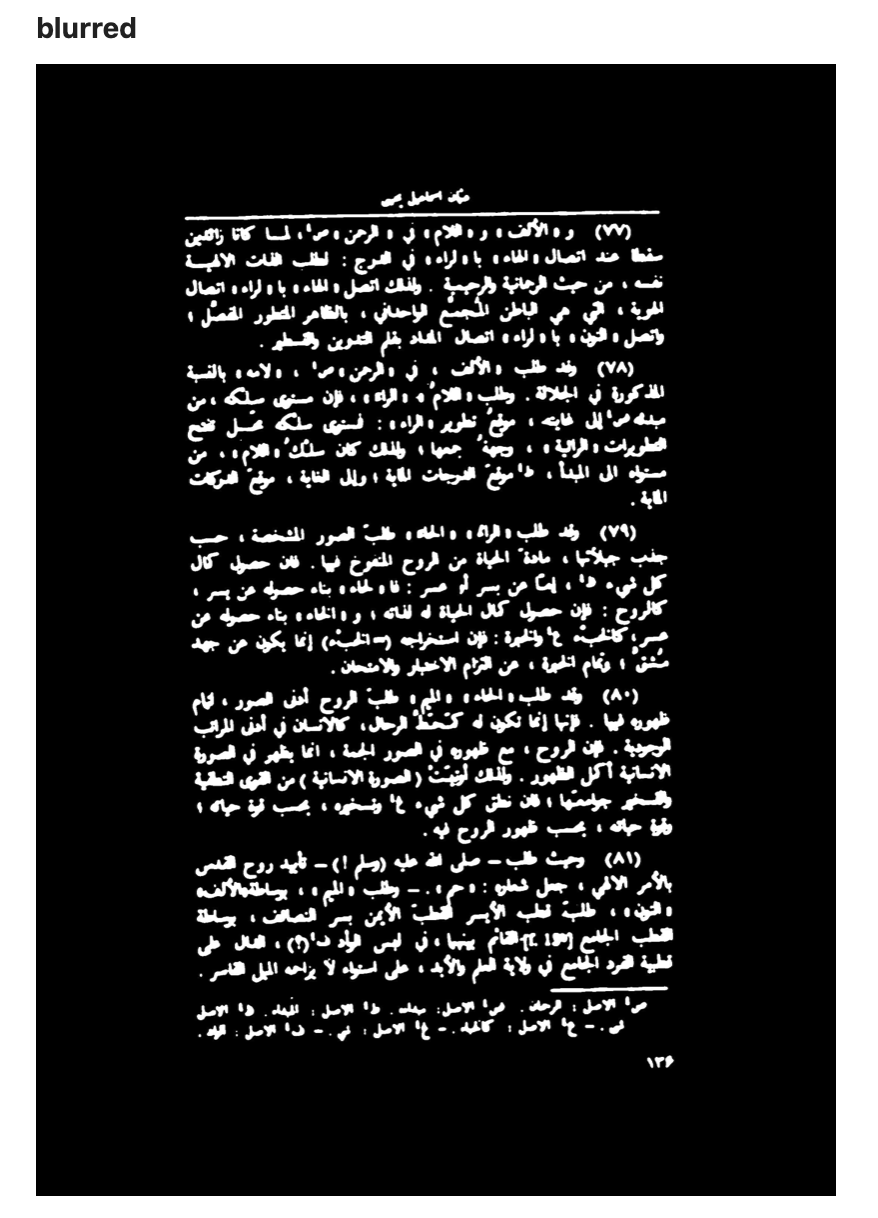 blurred
عثمان اسماعيل يحيى
(٧٧) و «الألف» و «اللام» في «الرحمن» ص¹، لمـا كانا زائدين
سقطا عند اتصال «الحاء» با «لراء» في الدرج : لطلب الذات الالهيـة
نفسه ، من حيث الرحمانية والرحيمية . ولذلك اتصل «الحاء» با «لراء» اتصال
الهوية ، التي هي الباطن المُجمَّع الواحداني ، بالظاهر المتطور المفصَّل ؛
واتصل «النون» با «لراء» اتصال المداد بقلم التدوين والتسطير .
(٧٨) وقد طلب «الألف» ، في «الرحمن» ص¹ ، «لامه» بالنسبة
المذكورة في الجلالة . وطلب «اللامُ» «الراء» ، فإن مستوى سلكه ، من
مبدئه ض¹ إلى غايته ، موقعُ تطوير «الراء» : فستوى سلكه محـّل تفتح
التطويرات «الرائية» ، وجهةُ جمعها ؛ ولذلك كان سلكُ «اللام» ، من
مستواه الى المبدأ ، ط¹ موقعَ الدرجات المائة ؛ وإلى الغاية ، موقعَ الدركات
المائة .
(٧٩) وقد طلب «الراءُ» «الحاء» طلبَ الصور المشخصة ، حسب
جذب جبلاّتها ، مادةَ الحياة من الروح المنفوخ فيها . فان حصول كمال
كل شيء ظ¹ ، إمّا عن يسر أو عسر : فا «لحاء» بناء حصوله عن يسر ،
كالروح : فإن حصول كمال الحياة له لذاته ؛ و «الخاء» بناء حصوله عن
عسر ؛ كالخبْء ع¹ والخبرة : فإن استخراجه (=الخبْء) إنما يكون عن جهد
مُشقٍّ ؛ وتمام الخبرة ، عن التزام الاختبار والامتحان .
(٨٠) وقد طلب «الحاء» «الميم» طلبَ الروح أدنى الصور ، لتمام
ظهوره فيها . فإنها إنما تكون له كَـمَحَطِّ الرحال ، كالانسان في أدنى المراتب
الوجودية . فإن الروح ، مع ظهوره في الصور الجمة ، انما يظهر في الصورة
الانسانية أكمل الظهور . ولذلك أوتيَتْ ( الصورة الانسانية ) من القوى النطقية
والتسخير جوامعَها ؛ فان نطق كل شيء غ¹ وتسخيره ، بحسب قوة حياته ؛
وقوة حياته ، بحسب ظهور الروح فيه .
(٨١) وحيث طلب – صلى الله عليه (وسلم !) – تأييد روح القدس
بالأمر الالهي ، جعل شعاره : «حم» . – وطلب «الميم» ، بوساطة «الألف»
«النون» ، طلبَ قطب الأيسر القطبَ الأيمن بسر التصاقف ، بوساطة
القطب الجامع القائم بينهما ، في لبس (؟) ، الدال على
قطبية الفرد الجامع في ولاية العلم والأبد ، على استواء لا يزاحمه الميل القاسر .
ص¹ الاصل : الرحمان . ض¹ الاصل : ط¹ الاصل : المبداء . ظ¹ الاصل
شي . – ع¹ الاصل : كالخباء . – غ¹ الاصل : شي . – ف¹ الاصل :
١٣۶